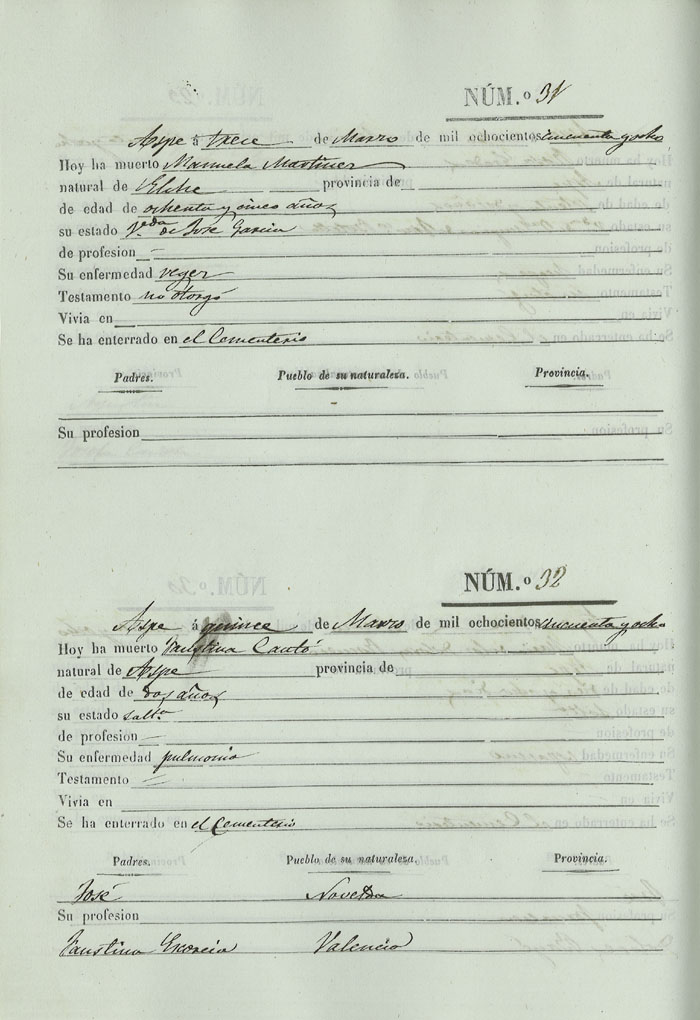 NÚM.º 31
Aspe á trece de Marzo de mil ochocientos cincuenta y ocho
Hoy ha muerto Manuela Martinez
natural de Elche provincia de
de edad de ochenta y cinco años
su estado V.da de José Garcia
de profesion
Su enfermedad vegez
Testamento no otorgó
Vivia en
Se ha enterrado en el Cementerio
Padres. Pueblo de su naturaleza. Provincia.
Su profesion
NÚM.º 32
Aspe á quince de Marzo de mil ochocientos cincuenta y ocho
Hoy ha muerto Faustina Cantó
natural de Aspe provincia de
de edad de dos años
su estado solt.a
de profesion
Su enfermedad pulmonia
Testamento
Vivia en
Se ha enterrado en el Cementerio
Padres. Pueblo de su naturaleza. Provincia.
José Novelda
Su profesion
Faustina Valencia